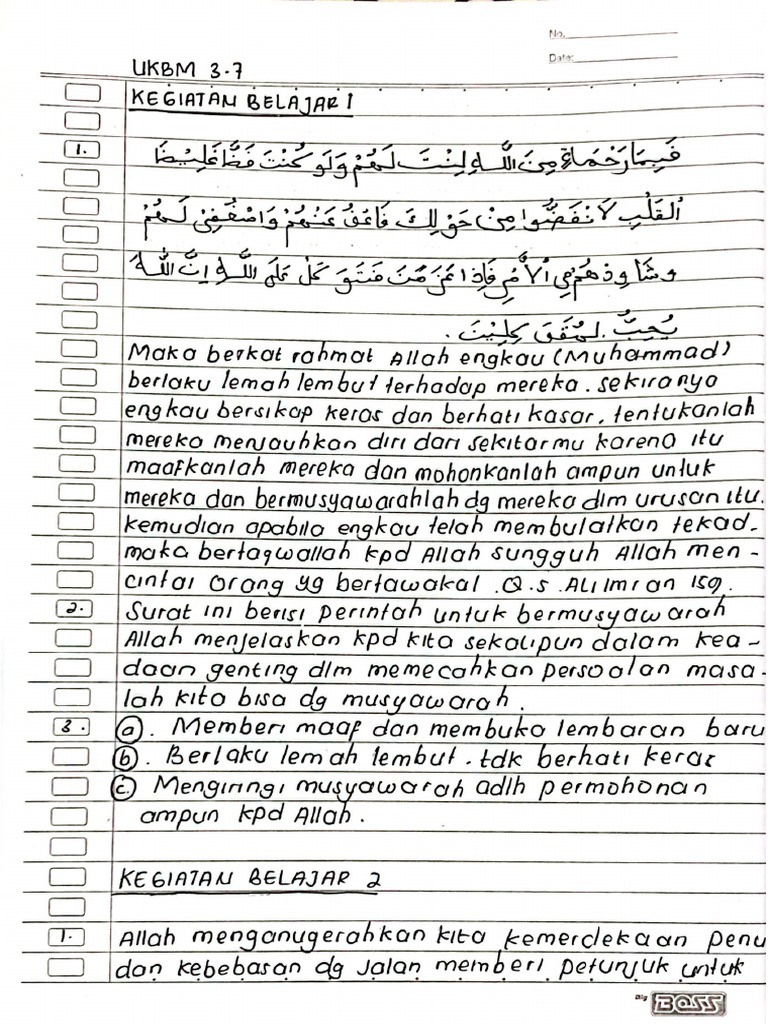 No.
Date:
UKBM 3.7
KEGIATAN BELAJAR 1
1. فَبِمَا رَحْمَةٍ مِنَ اللَّهِ لِنْتَ لَهُمْ وَلَوْ كُنْتَ فَظًّا غَلِيْظَا
الْقَلْبِ لَانْفَضُّوا مِنْ حَوْلِكَ فَاعْفُ عَنْهُمْ وَاسْتَغْفِرْ لَهُمْ
وَشَاوِرْهُمْ فِي الْأَمْرِ فَإِذَا عَزَمْتَ فَتَوَكَّلْ عَلَى اللَّهِ اِنَّ اللَّهَ
يُحِبُّ
Maka berkat rahmat Allah engkau (Muhammad)
berlaku lemah lembut terhadap mereka. sekiranya
engkau bersikap keras dan berhati kasar, tentukanlah
mereka menjauhkan diri dari sekitarmu karena itu
maafkanlah mereka dan mohonkanlah ampun untuk
mereka dan bermusyawarahlah dg mereka dlm urusan itu.
kemudian apabila engkau telah membulatkan tekad-
maka bertaqwallah kpd Allah sungguh Allah men-
cintai orang yg bertawakal. Q.S. Ali Imran 159.
2. Surat ini berisi perintah untuk bermusyawarah
Allah menjelaskan kpd kita sekalipun dalam kea-
daan genting dlm memecahkan persoalan masa-
lah kita bisa dg musyawarah.
3. a. Memberi maaf dan membuka lembaran baru
b. Berlaku lemah lembut. tdk berhati keras
c. Mengiringi musyawarah adlh permohonan
ampun kpd Allah.
KEGIATAN BELAJAR 2
1. Allah menganugerahkan kita kemerdekaan penu
dan kebebasan dg jalan memberi petunjuk untuk
Big BOSS